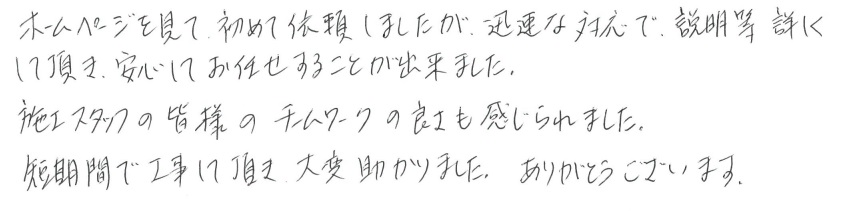 ホームページを見て、初めて依頼しましたが、迅速な対応で、説明等 詳しく
して頂き、安心してお任せすることが出来ました。
施工スタッフの皆様のチームワークの良さも感じられました。
短期間で工事して頂き、大変助かりました。ありがとうございます。